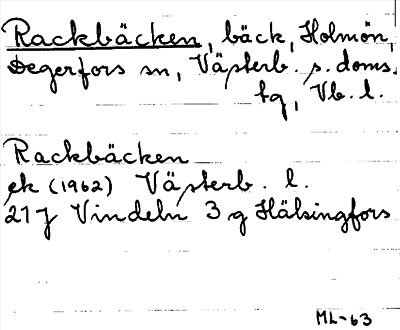 Rackbäcken, bäck, Holmön,
Degerfors sn, Västerb. s. doms.
tg, Vb. l.
Rackbäcken
ek (1962) Västerb. l.
21 J Vindeln 3 g Hälsingfors
ML-63